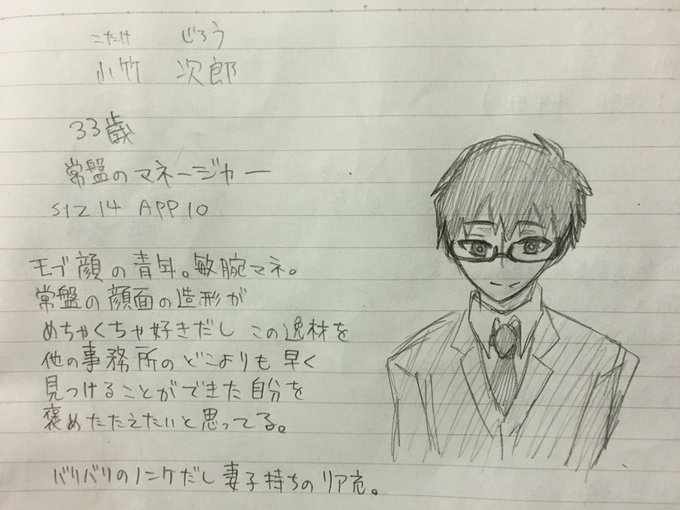 こたけ じろう
小竹 次郎
33歳
常盤のマネージャー
SIZ 14 APP 10
モブ顔の青年。敏腕マネ。
常盤の顔面の造形が
めちゃくちゃ好きだし この逸材を
他の事務所のどこよりも早く
見つけることができた自分を
褒めたたえたいと思ってる。
バリバリのノンケだし妻子持ちのリア充。